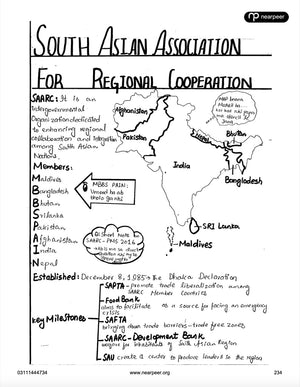 nearpeer
SOUTH ASIAN ASSOCIATION
FOR REGIONAL COOPERATION
SAARC: It is an
Intergovernmental
Organization dedicated
to enhancing regional
collaboration and Integration
among South Asian
Nations.
Members:
Maldives
Bangladesh
Bhutan
Srilanka
Pakistan
Afghanistan
India
Nepal
MBBS PAIN:
Afghanistan
Pakistan
India
Nepal
Bhutan
Bangladesh
SRI Lanka
Maldives
Short Note
SAARC - PMS 2016
Established: December 8, 1985 → the Dhaka Declaration
Key Milestones
SAPTA - promote trade liberalization among
SAARC Member Countries
Food Bank
aims to facilitate as a source for facing an emergency
crisis
SAFTA
bringing down trade barriers - trade free zones
SAARC - Development Bank
South Asian Region
SAU create a center to produce leaders in the region
03111444734
www.nearpeer.org
234